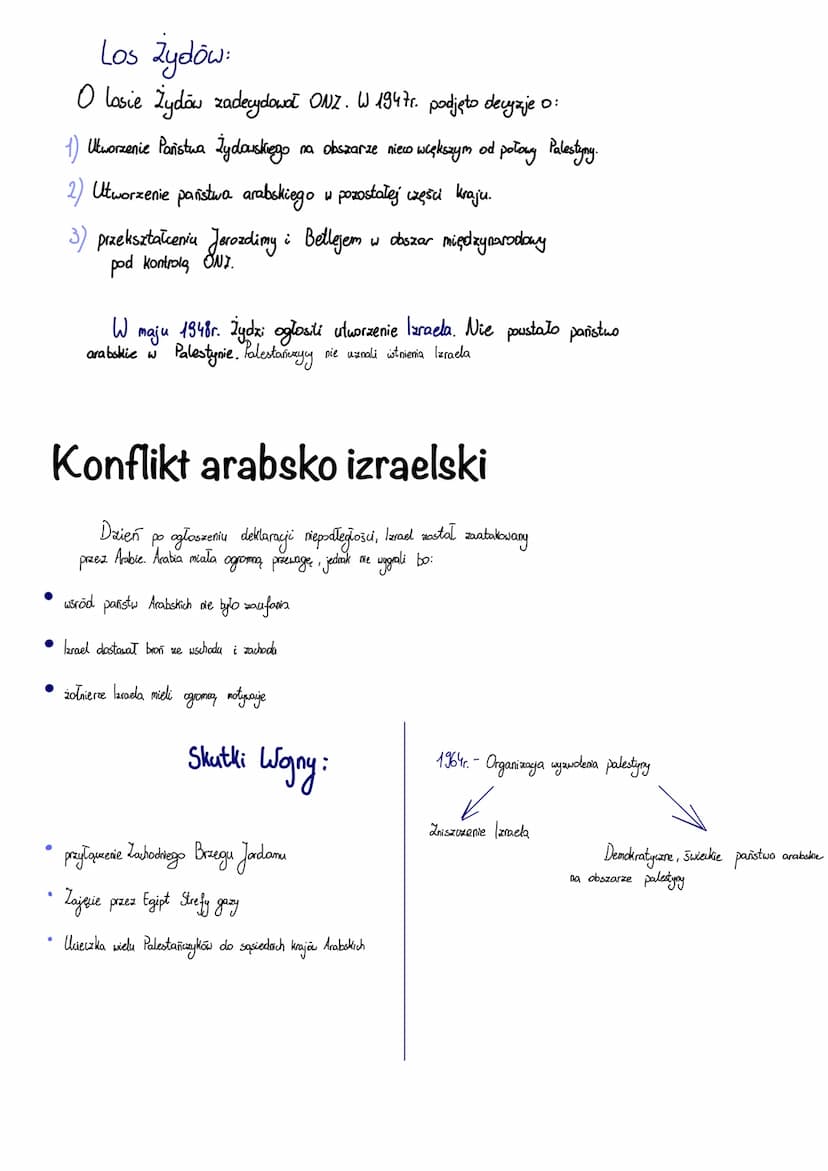 Los Żydów:
O losie Żydów zadecydował ONZ. W 1947r. podjęto decyzje o:
1) Utworzenie Państwa Żydowskiego na obszarze nieco większym od połowy Palestyny.
2) Utworzenie państwa arabskiego w pozostałej części kraju.
3) przekształceniu Jerozolimy i Betlejem w obszar międzynarodowy
pod kontrolą ONZ.
W maju 1948r. Żydzi ogłosili utworzenie Izraela. Nie powstało państwo
arabskie w Palestynie. Palestańczycy nie uznali istnienia Izraela
Konflikt arabsko izraelski
Dzień po ogłoszeniu deklaracji niepodległości, Izrael został zaatakowany
przez Arabie. Arabia miała ogromną przewagę, jednak nie wygrali bo:
• wśród państw Arabskich nie było zaufania
• Izrael dostawał broń ze wschodu i zachodu
• żołnierze Izraela mieli ogromną motywacje
Skutki Wojny:
• przyłączenie Zachodniego Brzegu Jordanu
• Zajęcie przez Egipt Strefy gazy
• Ucieczka wielu Palestańczyków do sąsiednich krajów Arabskich
1964r. - Organizacja wyzwolenia palestyny
Zniszczenie Izraela
Demokratyczne, świeckie państwo arabskie
na obszarze palestyny